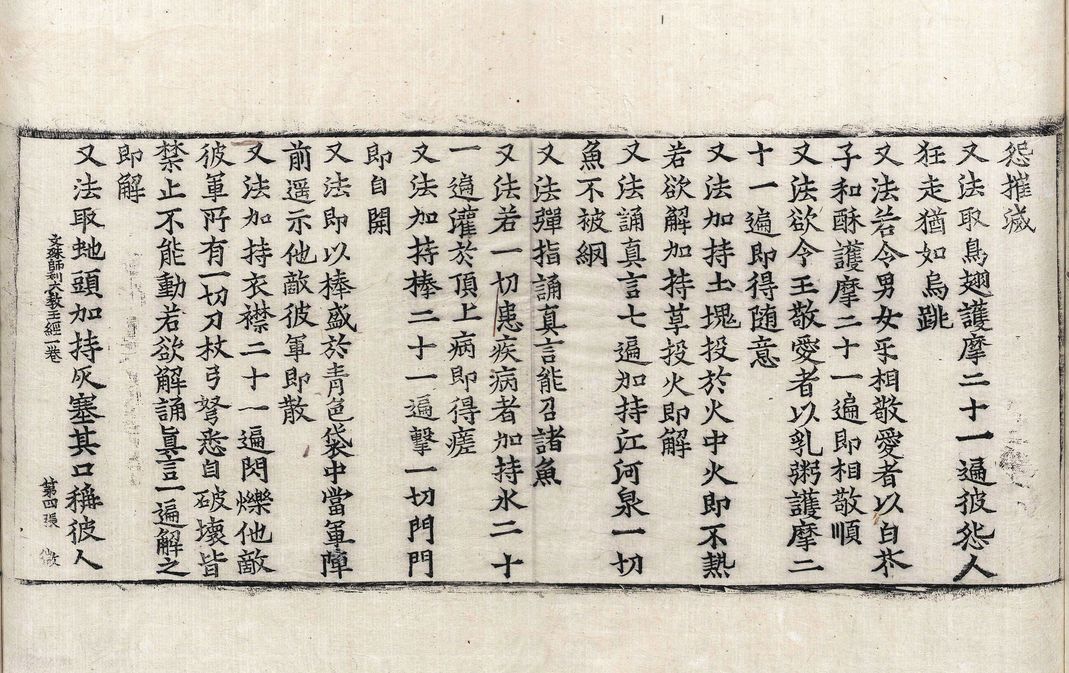 怨摧滅
又法取烏翅護摩二十一遍彼怨人
狂走猶如烏跳
又法若令男女乎相敬愛者以白芥
子和酥護摩二十一遍即相敬順
又法欲令王敬愛者以乳粥護摩二
十一遍即得随意
又法加持土塊投於火中火即不熱
若欲解加持草投火即解
又法誦真言七遍加持江河泉一切
魚不被網
又法彈指誦真言能召諸魚
又法若一切患疾病者加持水二十
一遍灌於頂上病即得瘥
又法加持棒二十一遍擊一切門門
即自開
又法即以棒盛於青色袋中當軍陣
前遥示他敵彼軍即散
又法加持衣襟二十一遍閃爍他敵
彼軍所有一切刀杖弓弩悉自破壞皆
禁止不能動若欲解誦真言一遍解之
即解
文殊師利大教王經一卷 第四張 微
又法取虵頭加持灰塞其口稱彼人